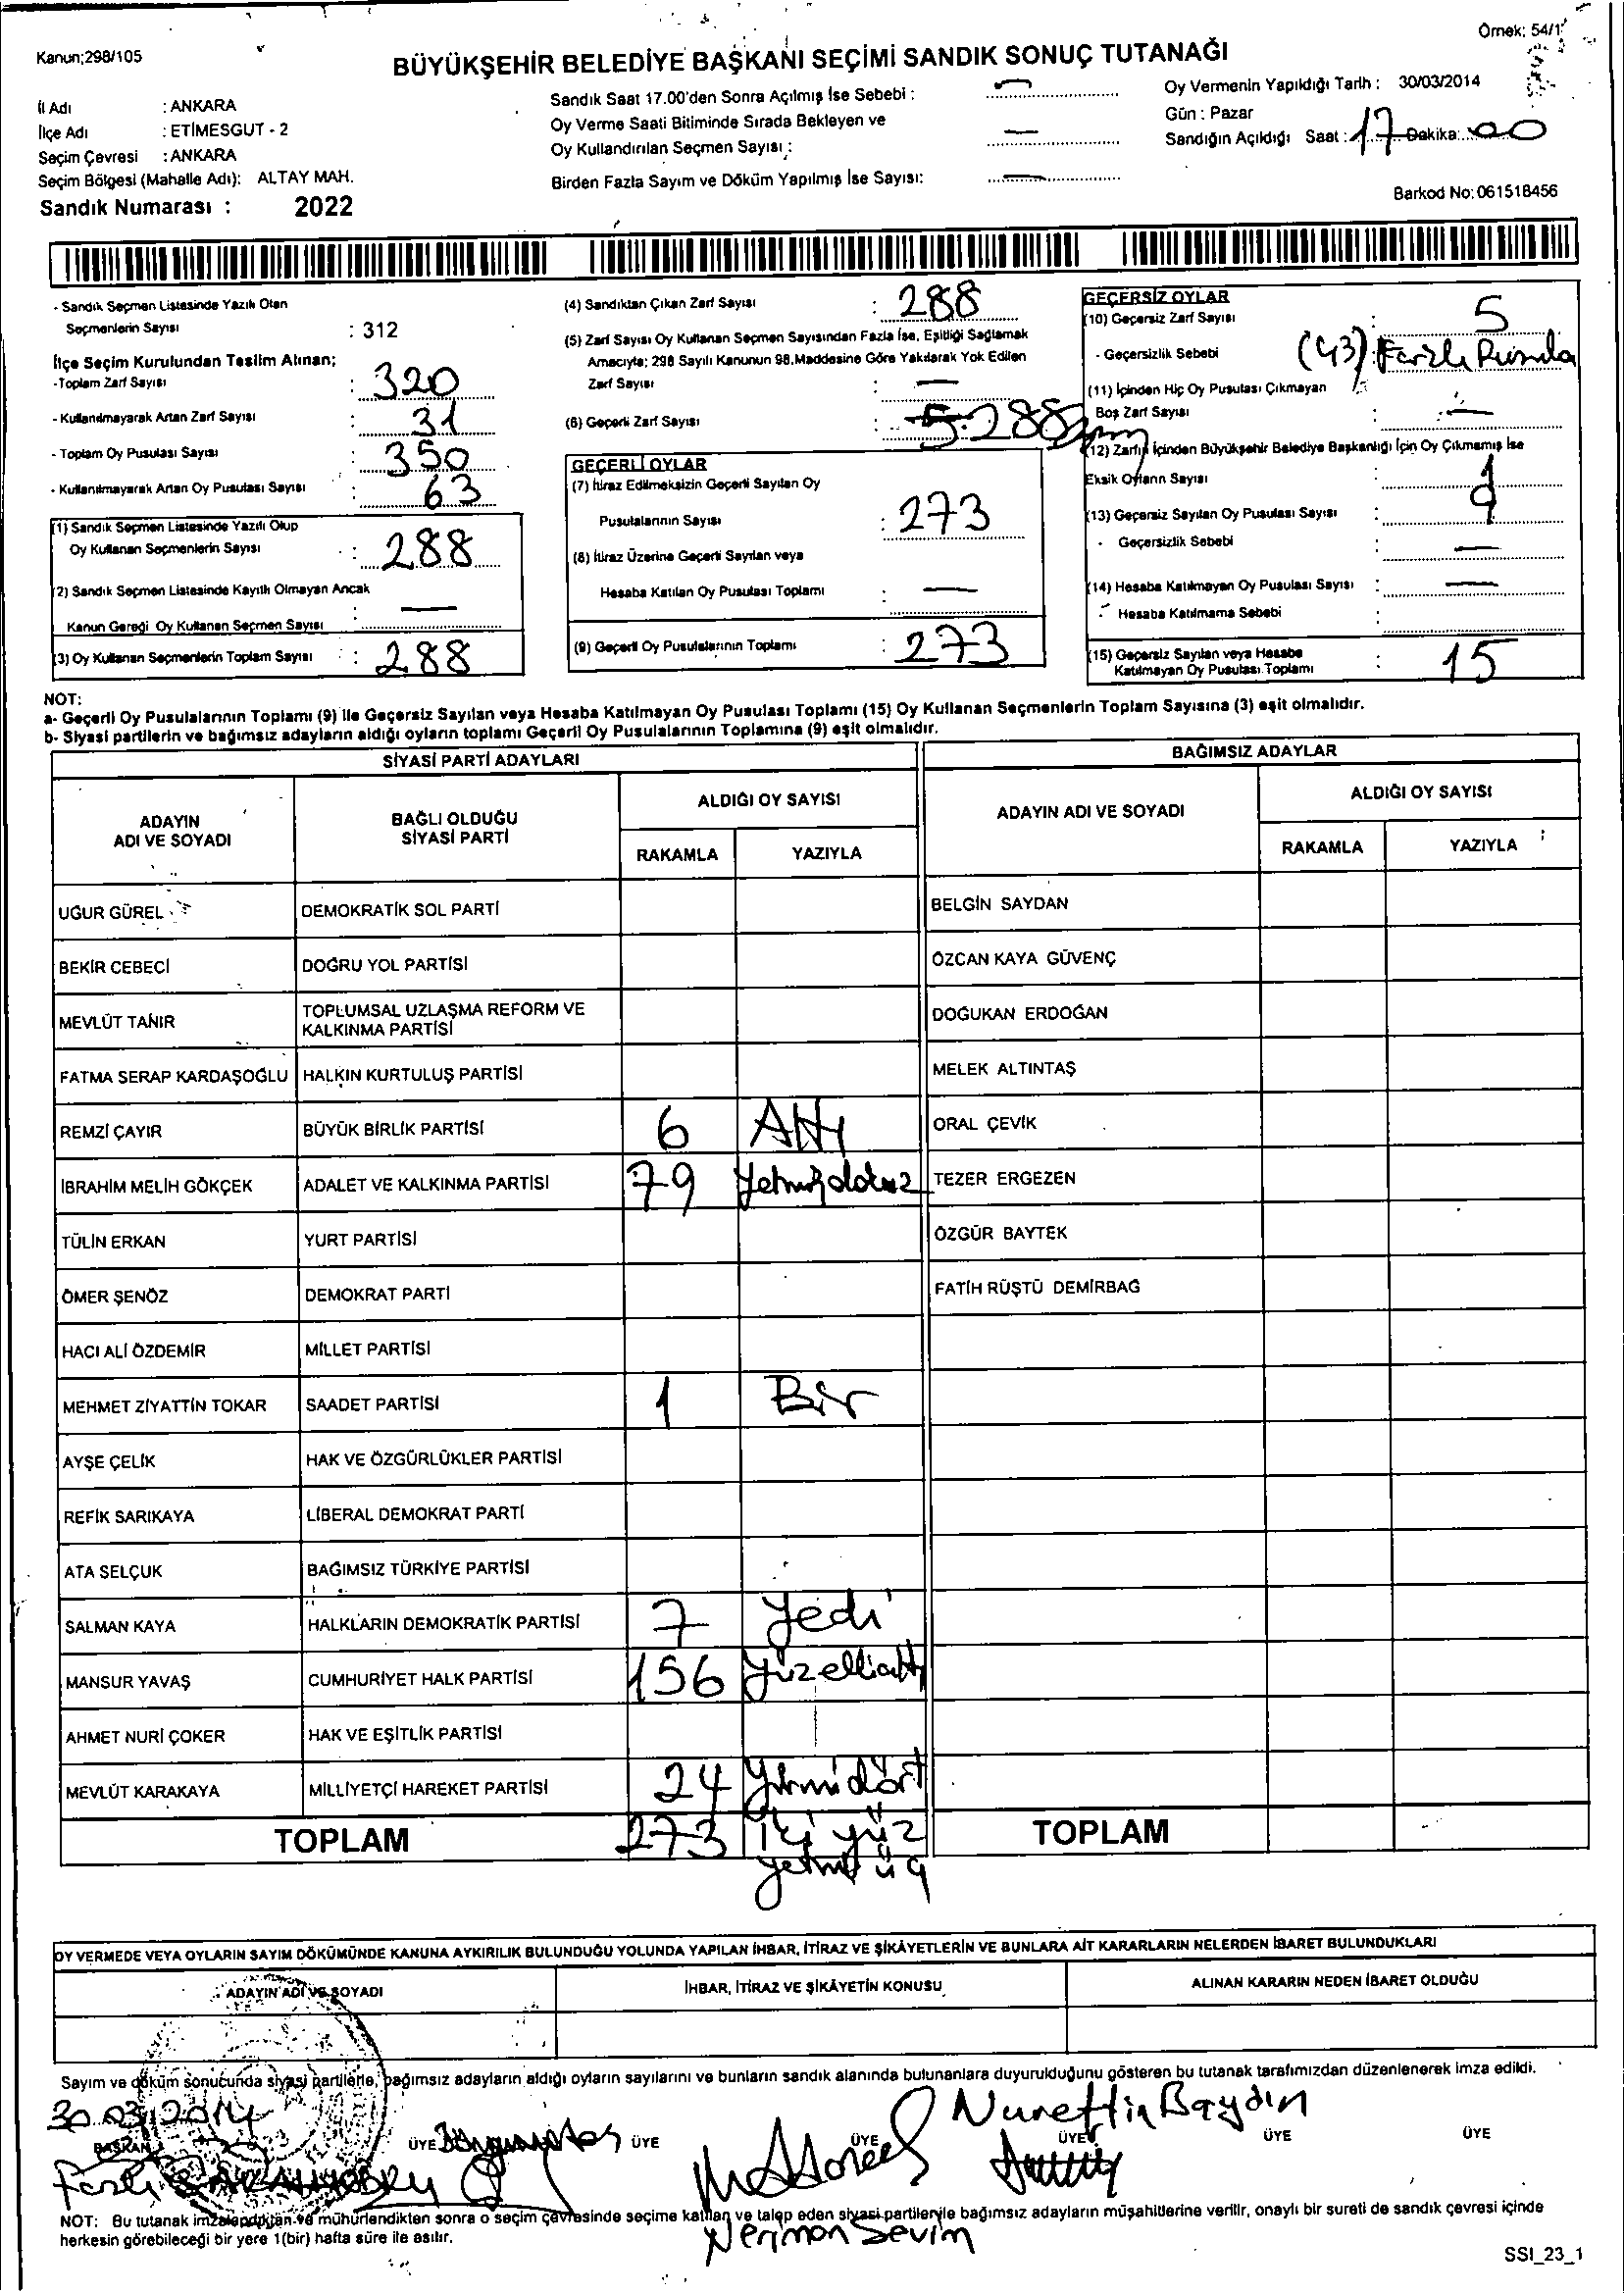 Örnek: 54/1
Kanun;298/105
BÜYÜKŞEHİR BELEDİYE BAŞKANI SEÇİMİ SANDIK SONUÇ TUTANAĞI
İl Adı : ANKARA
İlçe Adı : ETİMESGUT - 2
Seçim Çevresi : ANKARA
Seçim Bölgesi (Mahalle Adı): ALTAY MAH.
Sandık Numarası : 2022
Sandık Saat 17.00'den Sonra Açılmış İse Sebebi : —
Oy Verme Saati Bitiminde Sırada Bekleyen ve
Oy Kullandırılan Seçmen Sayısı : —
Birden Fazla Sayım ve Döküm Yapılmış İse Sayısı: —
Oy Vermenin Yapıldığı Tarih : 30/03/2014
Gün : Pazar
Sandığın Açıldığı Saat : 17 Dakika: 00
Barkod No: 061518456
- Sandık Seçmen Listesinde Yazılı Olan
Seçmenlerin Sayısı : 312
İlçe Seçim Kurulundan Teslim Alınan;
-Toplam Zarf Sayısı : 320
- Kullanılmayarak Artan Zarf Sayısı : 31
- Toplam Oy Pusulası Sayısı : 350
- Kullanılmayarak Artan Oy Pusulası Sayısı : 63
(1) Sandık Seçmen Listesinde Yazılı Olup
Oy Kullanan Seçmenlerin Sayısı : 288
(2) Sandık Seçmen Listesinde Kayıtlı Olmayan Ancak
Kanun Gereği Oy Kullanan Seçmen Sayısı : —
(3) Oy Kullanan Seçmenlerin Toplam Sayısı : 288
(4) Sandıktan Çıkan Zarf Sayısı : 288
(5) Zarf Sayısı Oy Kullanan Seçmen Sayısından Fazla İse, Eşitliği Sağlamak
Amacıyla; 298 Sayılı Kanunun 98.Maddesine Göre Yakılarak Yok Edilen
Zarf Sayısı : —
(6) Geçerli Zarf Sayısı : 5 288
GEÇERLİ OYLAR
(7) İtiraz Edilmeksizin Geçerli Sayılan Oy
Pusulalarının Sayısı : 273
(8) İtiraz Üzerine Geçerli Sayılan veya
Hesaba Katılan Oy Pusulası Toplamı : —
(9) Geçerli Oy Pusulalarının Toplamı : 273
GEÇERSİZ OYLAR
(10) Geçersiz Zarf Sayısı : 5
- Geçersizlik Sebebi : Fazla Pusula
(11) İçinden Hiç Oy Pusulası Çıkmayan
Boş Zarf Sayısı : —
(12) Zarfın İçinden Büyükşehir Belediye Başkanlığı İçin Oy Çıkmamış İse
Eksik Oyların Sayısı
(13) Geçersiz Sayılan Oy Pusulası Sayısı :
- Geçersizlik Sebebi : —
(14) Hesaba Katılmayan Oy Pusulası Sayısı : —
- Hesaba Katılmama Sebebi :
(15) Geçersiz Sayılan veya Hesaba
Katılmayan Oy Pusulası Toplamı : 15
NOT:
a- Geçerli Oy Pusulalarının Toplamı (9) ile Geçersiz Sayılan veya Hesaba Katılmayan Oy Pusulası Toplamı (15) Oy Kullanan Seçmenlerin Toplam Sayısına (3) eşit olmalıdır.
b- Siyasi partilerin ve bağımsız adayların aldığı oyların toplamı Geçerli Oy Pusulalarının Toplamına (9) eşit olmalıdır.
SİYASİ PARTİ ADAYLARI
ADAYIN ADI VE SOYADI
BAĞLI OLDUĞU SİYASİ PARTİ
ALDIĞI OY SAYISI
RAKAMLA YAZIYLA
UĞUR GÜREL DEMOKRATİK SOL PARTİ
BEKİR CEBECİ DOĞRU YOL PARTİSİ
MEVLÜT TANIR TOPLUMSAL UZLAŞMA REFORM VE KALKINMA PARTİSİ
FATMA SERAP KARDAŞOĞLU HALKIN KURTULUŞ PARTİSİ
REMZİ ÇAYIR BÜYÜK BİRLİK PARTİSİ 6 Altı
İBRAHİM MELİH GÖKÇEK ADALET VE KALKINMA PARTİSİ 79 Yetmişdokuz
TÜLİN ERKAN YURT PARTİSİ
ÖMER ŞENÖZ DEMOKRAT PARTİ
HACI ALİ ÖZDEMİR MİLLET PARTİSİ
MEHMET ZİYATTİN TOKAR SAADET PARTİSİ 1 Bir
AYŞE ÇELİK HAK VE ÖZGÜRLÜKLER PARTİSİ
REFİK SARIKAYA LİBERAL DEMOKRAT PARTİ
ATA SELÇUK BAĞIMSIZ TÜRKİYE PARTİSİ
SALMAN KAYA HALKLARIN DEMOKRATİK PARTİSİ 7 Yedi
MANSUR YAVAŞ CUMHURİYET HALK PARTİSİ 156 Yüzellialtı
AHMET NURİ ÇOKER HAK VE EŞİTLİK PARTİSİ
MEVLÜT KARAKAYA MİLLİYETÇİ HAREKET PARTİSİ 24 Yirmidört
TOPLAM 273 İki yüz
yetmiş üç
BAĞIMSIZ ADAYLAR
ADAYIN ADI VE SOYADI
ALDIĞI OY SAYISI
RAKAMLA YAZIYLA
BELGİN SAYDAN
ÖZCAN KAYA GÜVENÇ
DOĞUKAN ERDOĞAN
MELEK ALTINTAŞ
ORAL ÇEVİK
TEZER ERGEZEN
ÖZGÜR BAYTEK
FATİH RÜŞTÜ DEMİRBAĞ
TOPLAM
OY VERMEDE VEYA OYLARIN SAYIM DÖKÜMÜNDE KANUNA AYKIRILIK BULUNDUĞU YOLUNDA YAPILAN İHBAR, İTİRAZ VE ŞİKÂYETLERİN VE BUNLARA AİT KARARLARIN NELERDEN İBARET BULUNDUKLARI
ADAYIN ADI VE SOYADI
İHBAR, İTİRAZ VE ŞİKÂYETİN KONUSU
ALINAN KARARIN NEDEN İBARET OLDUĞU
Sayım ve döküm sonucunda siyasi partilerle, bağımsız adayların aldığı oyların sayılarını ve bunların sandık alanında bulunanlara duyurulduğunu gösteren bu tutanak tarafımızdan düzenlenerek imza edildi.
30.03.2014
Nurettin Baydın
BAŞKAN ÜYE ÜYE ÜYE ÜYE ÜYE ÜYE
NOT: Bu tutanak imzalandıktan ve mühürlendikten sonra o seçim çevresinde seçime katılan ve talep eden siyasi partilerle bağımsız adayların müşahitlerine verilir, onaylı bir sureti de sandık çevresi içinde
herkesin görebileceği bir yere 1(bir) hafta süre ile asılır.
Neriman Sevim
SSI_23_1